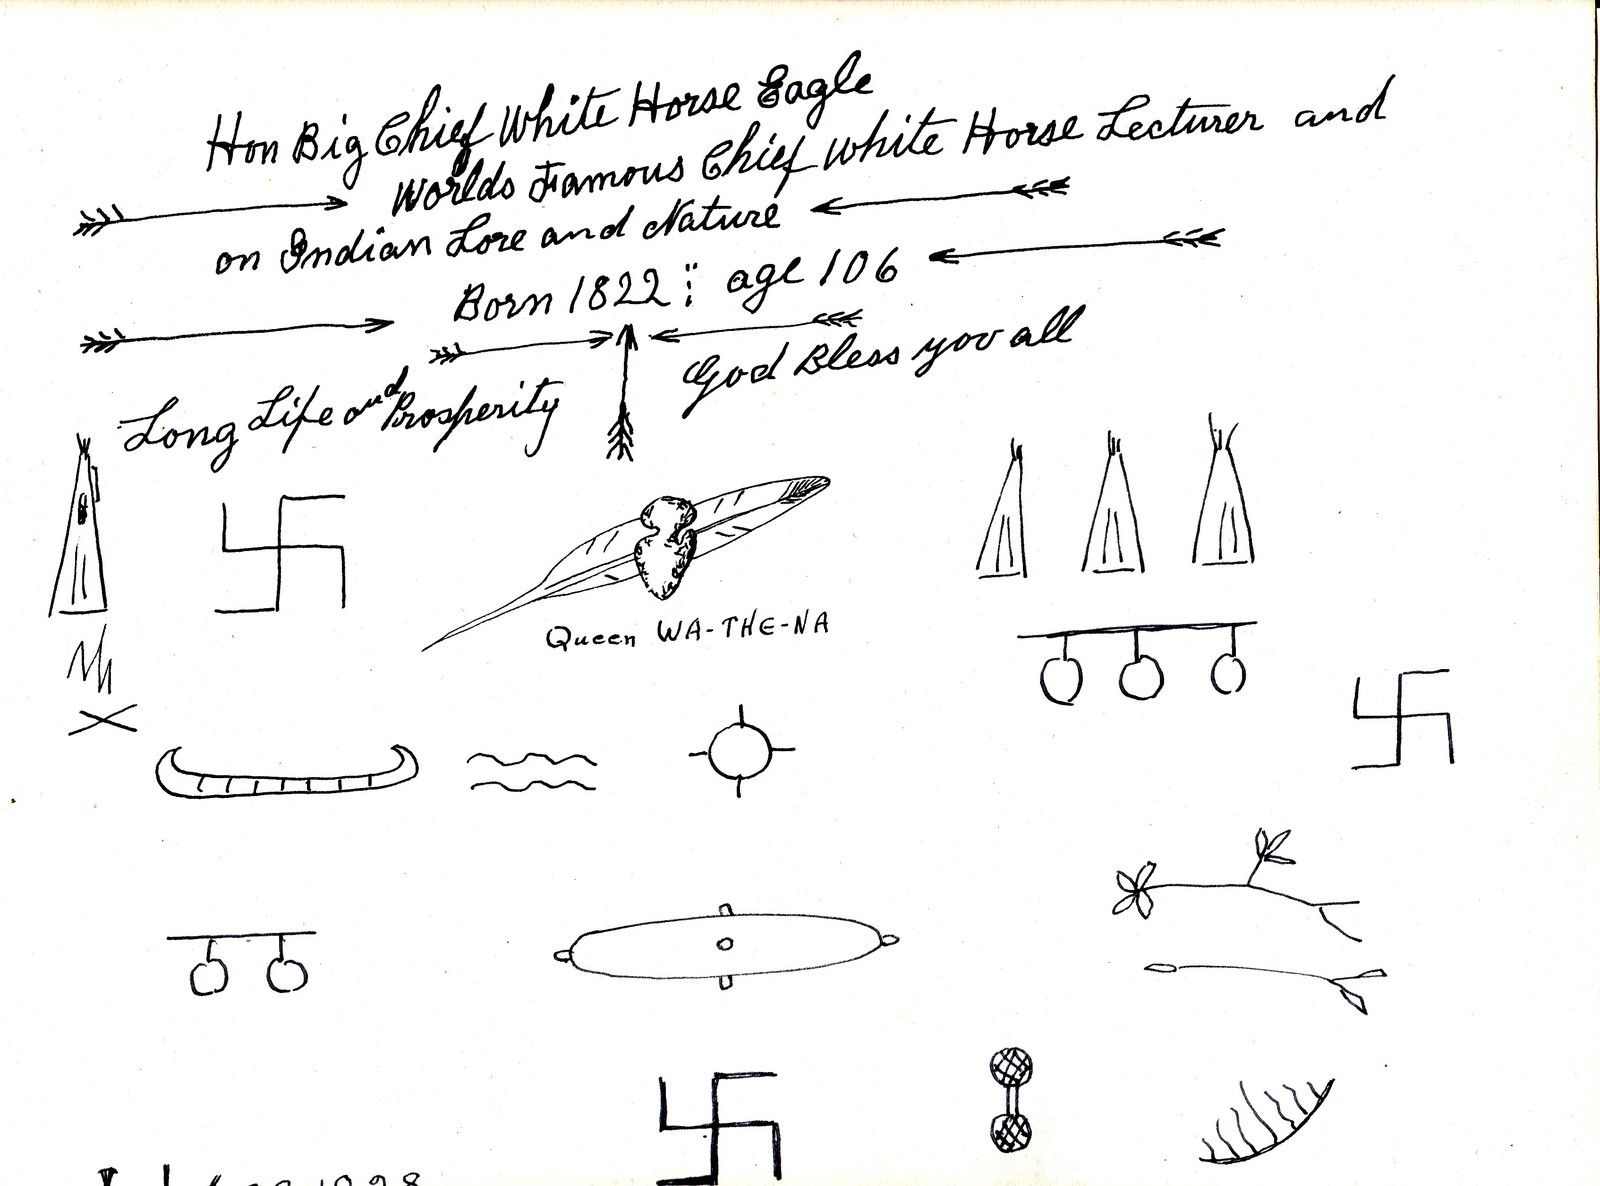 Hon Big Chief White Horse Eagle
Worlds Famous Chief White Horse Lecturer and
on Indian Lore and Nature
Born 1822 age 106
Long Life and Prosperity
God Bless you all
Queen WA-THE-NA
1928